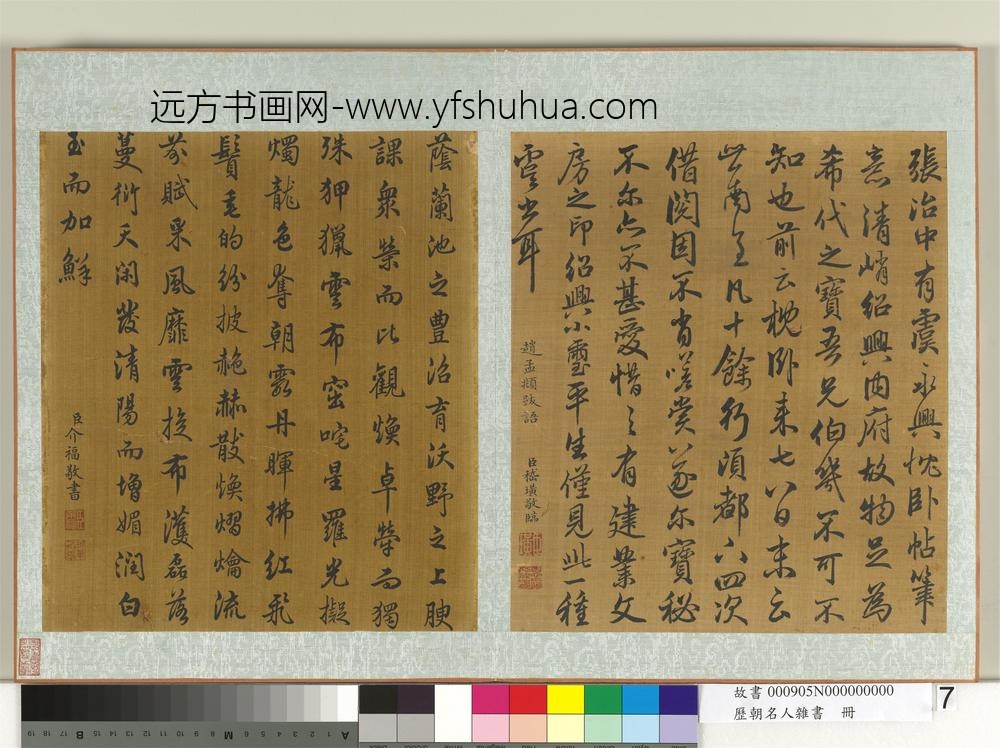 远方书画网-www.yfshuhua.com
張治中有虞永興枕卧帖筆
意清峭紹興內府故物足為
希代之寶吾兄伯幾不可不
知也前云枕卧来七八日未云
此南至凡十餘行須都六四次
借閱因不肯嗟賞以遂尔寶秘
不尔亦不甚愛惜之有建業文
房之印紹興小璽平生僅見此一種
虞書耳
趙孟頫跋語
臣嵇璜敬臨
蔭蘭池之豊沼育沃野之上腴
課衆榮而比觀煥卓犖而獨
殊狎獵雲布窋咤星羅光擬
燭龍色奪朝霞丹暉拂紅飛
鬢毛的紛披赩赫散煥熠爚流
芬賦采風靡雲旋布濩磊落
蔓衍夭閑發清陽而增媚潤白
玉而加鮮
臣介福敬書
故書 000905N000000000
歷朝名人雜書 冊
7